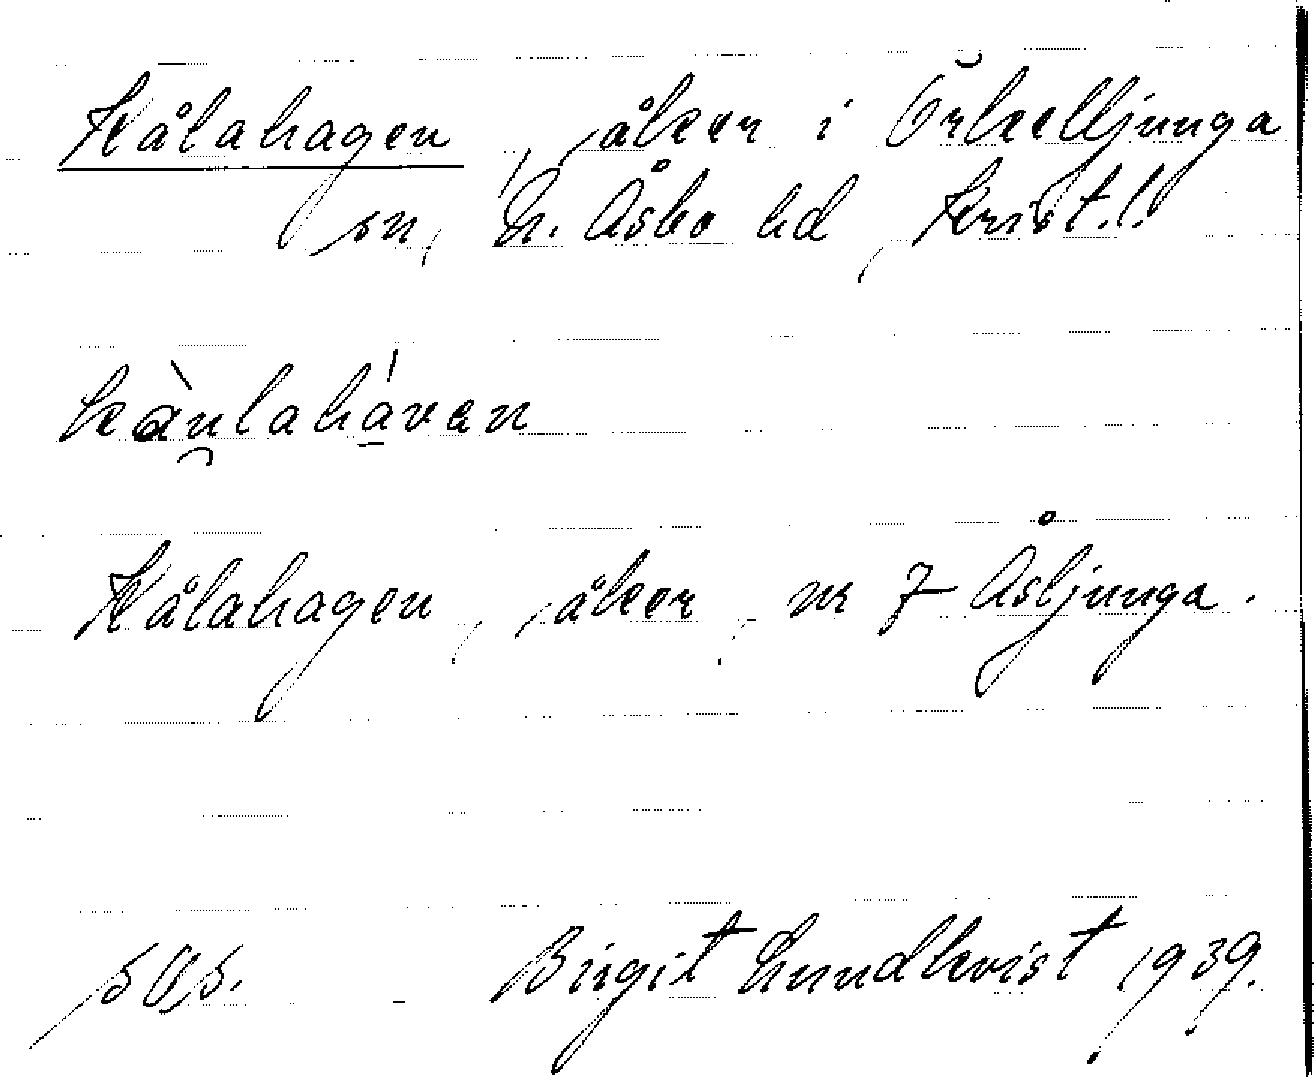 Kålahagen, åker i Örkelljunga
sn, N. Åsbo hd, Krist.l.
kàu̯lahá̱ven
Kålahagen, åker, nr 7 Åsljunga.
Birgit Lundkvist 1939.